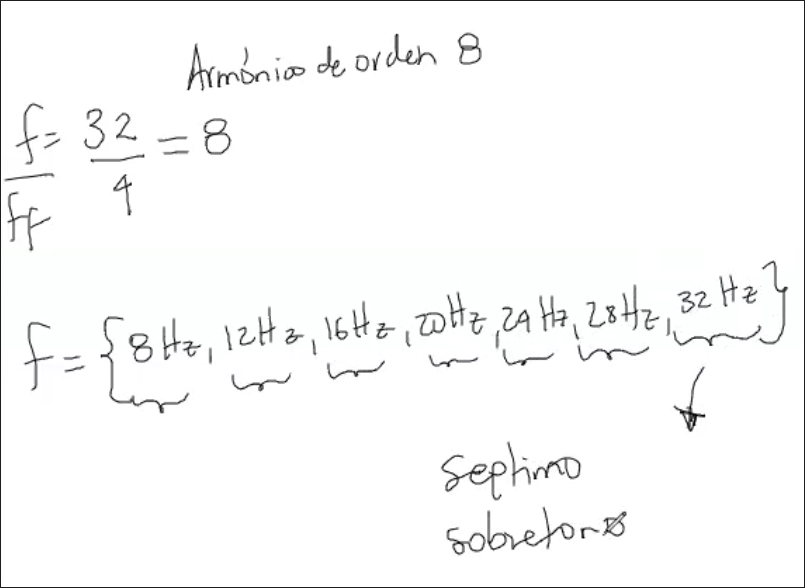 Armónico de orden 8
f/ff = 32/4 = 8
f = {8 Hz, 12 Hz, 16 Hz, 20 Hz, 24 Hz, 28 Hz, 32 Hz}
Septimo
sobretono